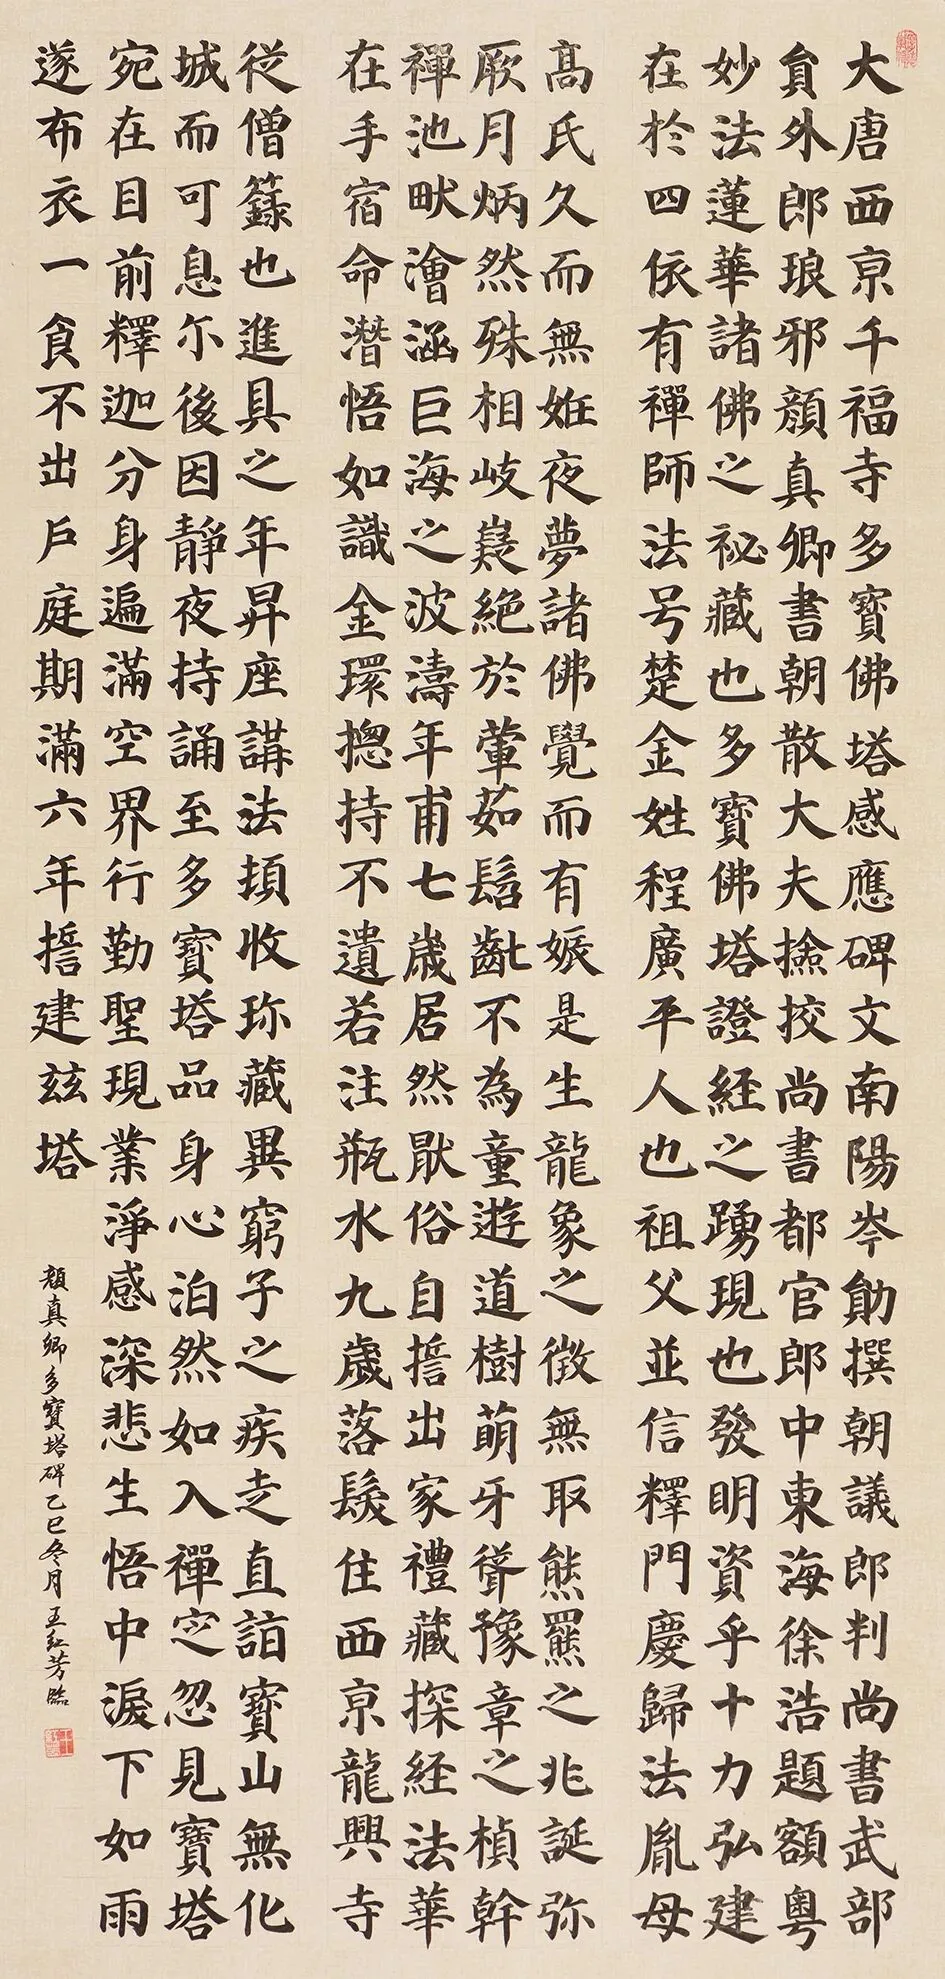 大唐西亰千福寺多寶佛塔感應碑文南陽岑勛撰朝議郎判尚書武部
貟外郎琅邪顏真卿書朝散大夫撿挍尚書都官郎中東海徐浩題額粤
妙法蓮華諸佛之祕藏也多寶佛塔證経之踴現也發明資乎十力弘建
在於四依有禪師法号楚金姓程廣平人也祖父並信釋門慶歸法胤母
髙氏久而無姙夜夢諸佛覺而有娠是生龍象之徵無取熊羆之兆誕弥
厥月炳然殊相岐嶷絕於葷茹髫齓不為童遊道樹萌牙聳豫章之楨幹
禪池畎澮涵巨海之波濤年甫七歲居然猒俗自誓出家禮藏探経法華
在手宿命潛悟如識金環揔持不遺若注瓶水九歲落髮住西亰龍興寺
從僧籙也進具之年昇座講法頓收珎藏異窮子之疾走直詣寶山無化
城而可息尒後因靜夜持誦至多寶塔品身心泊然如入禪定忽見寶塔
宛在目前釋迦分身遍滿空界行勤聖現業淨感深悲生悟中淚下如雨
遂布衣一食不出戶庭期滿六年誓建茲塔
顏真卿多寶塔碑乙巳冬月王紅芳臨